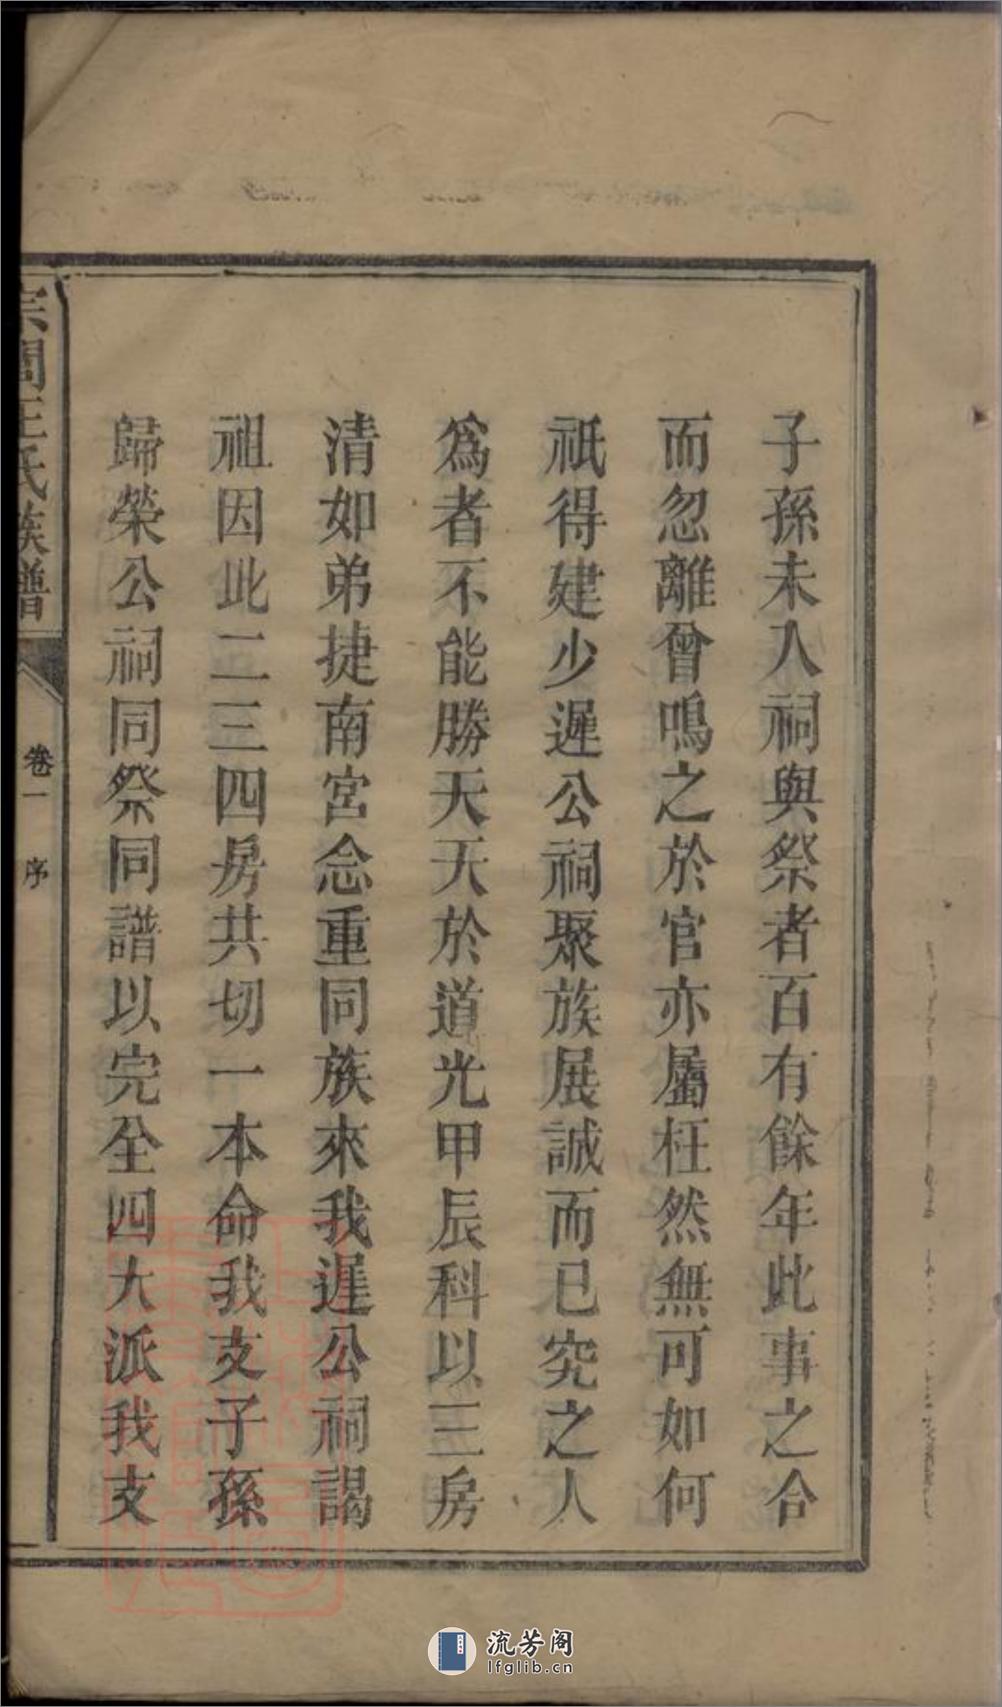 子孫未入祠與祭者百有餘年此事之合
而忽離曾鳴之於官亦屬枉然無可如何
祇得建少遲公祠聚族展誠而已究之人
爲者不能勝天天於道光甲辰科以三房
清如弟捷南宮念重同族來我遲公祠謁
祖因此二三四房共切一本命我支子孫
歸榮公祠同祭同譜以完全四大派我支
王氏族譜
卷一
序
流芳阁
lfglib.cn